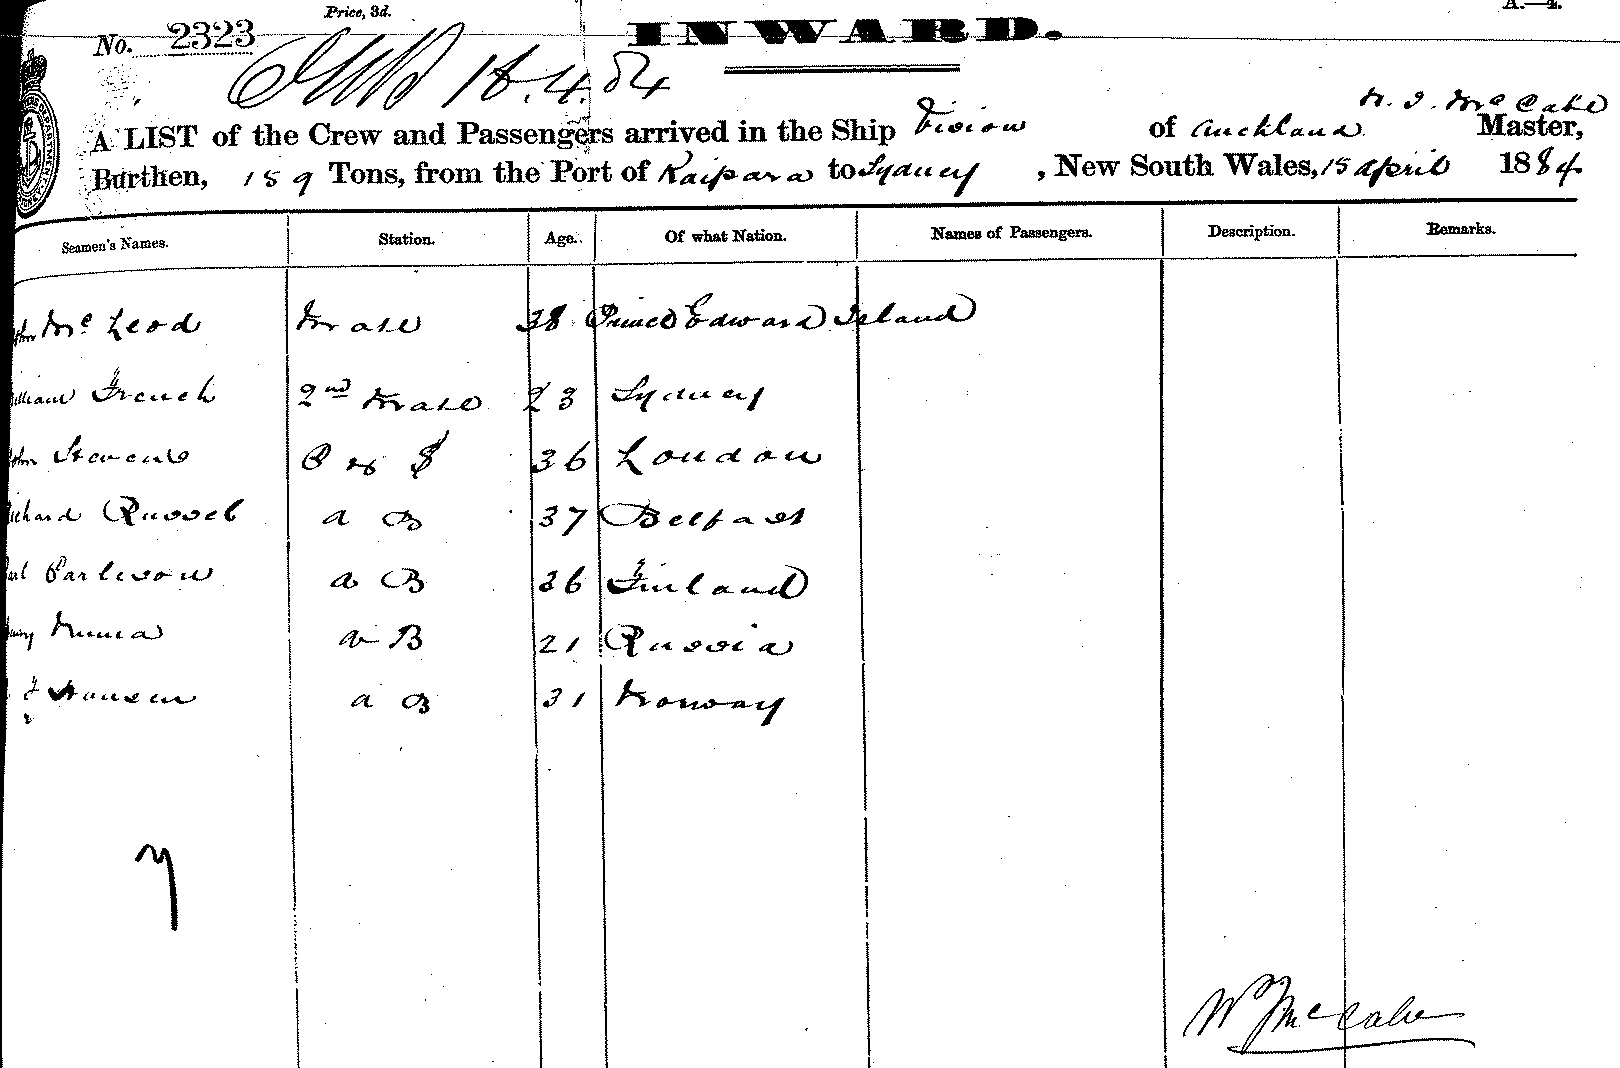 Price, 3d.
A.—4.
No. 2323
INWARD.
16.4.84
A LIST of the Crew and Passengers arrived in the Ship Vision of Auckland Mc Cabe Master,
Burthen, 159 Tons, from the Port of Kaipara to Sydney, New South Wales, 15 April 1884
Seamen's Names. Station. Age. Of what Nation. Names of Passengers. Description. Remarks.
Mc Leod Mate 38 Prince Edward Island
William French 2nd Mate 23 Sydney
John Stevens C & S 36 London
Richard Russel a B 37 Belfast
a B 36 Finland
a B 21 Russia
Hansen a B 31 Norway
7
W J McCabe